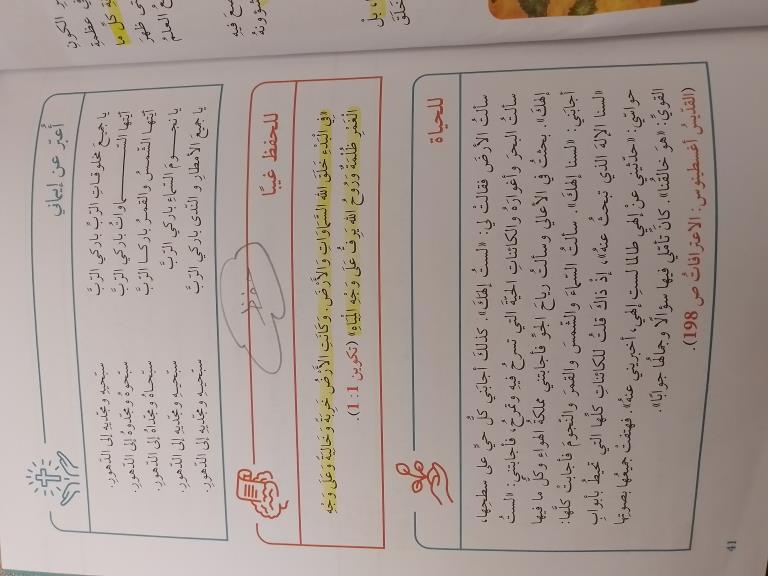 أعبّر عن إيماني
يا جميعَ مخلوقاتِ الربِّ باركي الربَّ سبّحيهِ ومجّديهِ إلى الدهور.
أيّتها الســـماواتُ باركي الربَّ سبّحوهُ ومجّدوهُ إلى الدهور.
أيّتها الشمسُ والقمرُ باركـا الربَّ سبّحـاهُ ومجّداهُ إلى الدهور.
يا نجـــومَ السماءِ باركي الربَّ سبّحيهِ ومجّديهِ إلى الدهور.
يا جميعَ الأمطارِ والندى باركي الربَّ سبّحيهِ ومجّديهِ إلى الدهور.
للحفظ غيبًا
«فِي الْبَدْءِ خَلَقَ اللهُ السَّمَاوَاتِ وَالأَرْضَ. وَكَانَتِ الأَرْضُ خَرِبَةً وَخَالِيَةً وَعَلَى وَجْهِ
الْغَمْرِ ظُلْمَةٌ وَرُوحُ اللهِ يَرِفُّ عَلَى وَجْهِ الْمِيَاهِ» (تكوين 1: 1).
حفظ
للحياة
سألتُ الأرضَ فقالتْ لي: «لستُ إلهَكَ». كذلكَ أجابَني كلُّ حيٍّ على سطحِها،
سألتُ البحرَ وأغوارَهُ والكائناتِ الحيّةَ التي تسرحُ فيهِ وتمرحُ، فأجابتني: «لستُ
إلهكَ». بحثتُ في الأعالي وسألتُ رياحَ الجوِّ فأجابتني مملكةُ الهواءِ وكلُّ ما فيها
أجابَني: «لسنا إلهكَ». سألتُ السماءَ والشمسَ والقمرَ والنجومَ فأجابتْ كلُّها:
«لسنا الإلهَ الذي تبحثُ عنهُ»، إذ ذاكَ قلتُ للكائناتِ كلِّها التي تحيطُ بأبوابِ
حواسّي: «حدّثيني عنْ إلهي طالما لستِ إلهي، أخبريني عنهُ». فهتفتْ جميعُها بصوتِها
القويِّ: «هوَ خالقُنا». كانَ تأمّلي فيها سؤالًا وجمالُها جوابًا».
(القدّيسُ أغسطينوس: الاعترافاتُ ص 198).
41